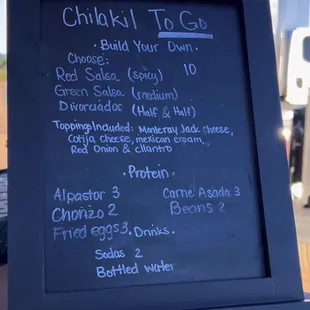 Chilakil To Go
· Build Your Own ·
Choose:
Red Salsa (spicy) 10
Green Salsa (medium)
Divorciados (Half & Half)
Toppings Included: Monteray Jack cheese,
Cotija cheese, mexican cream,
Red Onion & cilantro
· Protein ·
Alpastor 3 Carne Asada 3
Chorizo 2 Beans 2
Fried eggs 3 . Drinks .
Sodas 2
Bottled water